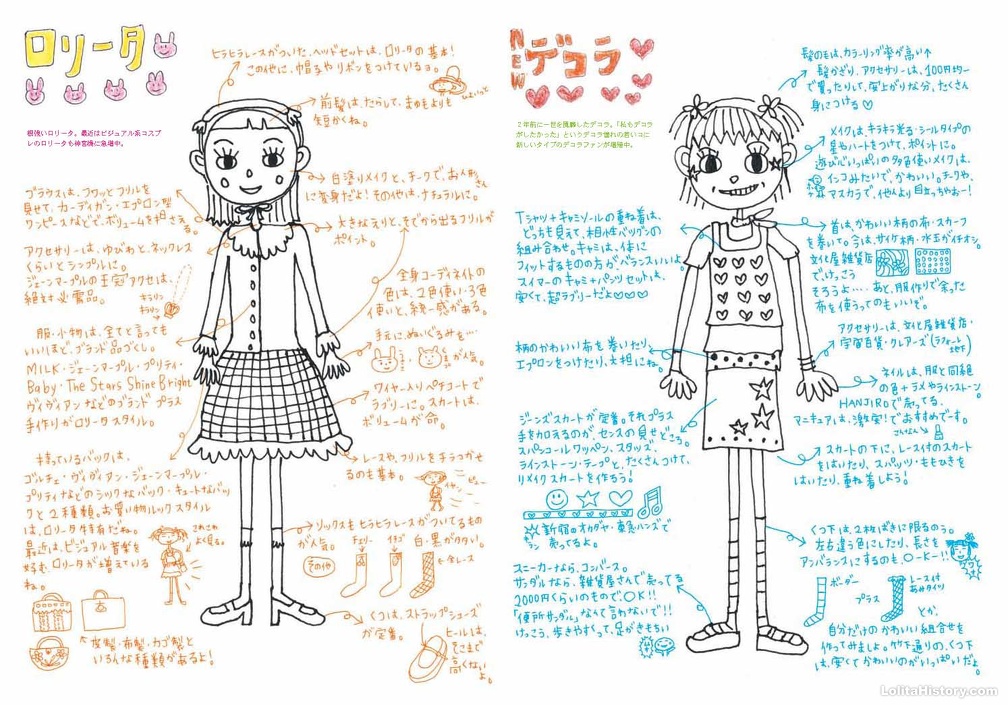 ロリータ
根強いロリータ。最近はビジュアル系コスプ
レのロリータも神宮橋に急増中。
ヒラヒラレースがついた、ヘッドセットは、ロリータの基本!
この他に、帽子やリボンをつけているヨ。
前髪は、たらして、まゆもよりも
短かくね。
白塗りメイクと、チークで、お人形さん
に変身だよ!その他は、ナチュラルに。
大きなえりと、そでから出るフリルが
ポイント。
ブラウスは、フワッとフリルを
見せて、カーディガン・エプロン型
ワンピースなどで、ボリュームを出
アクセサリーは、ゆびわと、ネックレス
くらいとシンプルに。
ジェーンマープルの王冠アクセは、
絶対必需品。
キラリン
キラリン
全身コーディネイトの
色は、2色使い・3色
使いと、統一感がある。
服・小物は、全てと言っても
いいほど、ブランド品づくし。
MILK・ジェーンマープル・プリティ・
Baby・The Stars Shine Bright
ヴィヴィアンなどのブランド プラス
手作りがロリータスタイル。
手元にぬいぐるみを…
が人気。
ワイヤー入りペチコートで
ラブリーに。スカートは、
ボリュームが命。
レースや、フリルをチラつかせ
るのも基本。
持っているバッグは、
ゴルチェ・ヴィヴィアン・ジェーンマープル・
プリティなどのシックなバック・キュートなバッ
グと2種類。お買い物ルックスタイル
は、ロリータ特有だね。
最近は、ビジュアル音楽を
好む、ロリータが増えている
ね。
これこれ
よく見る。
ソックスもヒラヒラレースがついてるもの
が人気。
チェリー
イチゴ
白・黒がカタい。
その他
金レース
くつは、ストラップシューズ
が定番。
ヒールは、
そこまで
高くない
よ。
皮製・布製・カゴ製と
いろんな種類があるよ!
NEW デコラ
2年前に一世を風靡したデコラ。「私もデコラ
がしたかった」というデコラ憧れの若いコに
新しいタイプのデコラファンが増殖中。
髪の毛は、カラーリング率が高い↑
髪かざり、アクセサリーは、100円均一
で買ったりして、安上がりな分、たくさん
身につける♡
メイクは、キラキラ光る・シールタイプの
星やハートをつけて、ポイントに。
遊び心いっぱいの多色使いメイクは、
インコみたいで、かわいい。チークや、
マスカラで、他人より目立っちゃおー!
Tシャツ+キャミソールの重ね着は、
どっちも見えて、相性バツグンの
組み合わせ。キャミは、体に
フィットするものの方が、バランスいいよ。
スイマーのキャミ+パンツセットは、
安くて、超ラブリーだよ♡♡♡
首は、かわいい柄の布・スカーフ
を巻いて。今は、サイケ柄・水玉がイチオシ。
文化屋雑貨店
でけっこう
そろうよ…。あと、服作りで余った
布を使ってのもいいぞ。
アクセサリーは、文化屋雑貨店・
宇宙百貨・クレアーズ(ラフォーレ
地下)
柄のかわいい布を巻いたり、
エプロンをつけたり、大胆にね。
ネイルは、服と同総
の色+ラメやラインストーン。
HANJIROで売ってる、
マニキュアは、激安!でおすすめです。
こんなん
ジーンズスカートが定番。それプラス
手を加えるのが、センスの見せどころ。
スパンコール・ワッペン・スタッズ、
ラインストーン・テープと、たくさんつけて、
リメイクスカートを作ろう!
新宿のオカダヤ・東急ハンズで
売ってるよ。
スカートの下に、レース付のスカート
をはいたり、スパッツ・ももひきを
はいたり、重ね着しよう!
くつ下は、2枚ばきに限るのう。
左右違う色にしたり、長さを
アンバランスにするのも、O-ケー!!
スニーカーなら、コンバース。
サンダルなら、雑貨屋さんで売ってる
2000円くらいのもので、OK!!
「便所サンダル」なんて言わないで!!
けっこう、歩きやすくって、足がきもちい
ボーダー
プラス
レース付
あみタイツ
とか、
自分だけのかわいい組合せを
作ってみましょ。竹下通りの、くつ下
は、安くてかわいいのがいっぱいだよ。
LolitaHistory.com